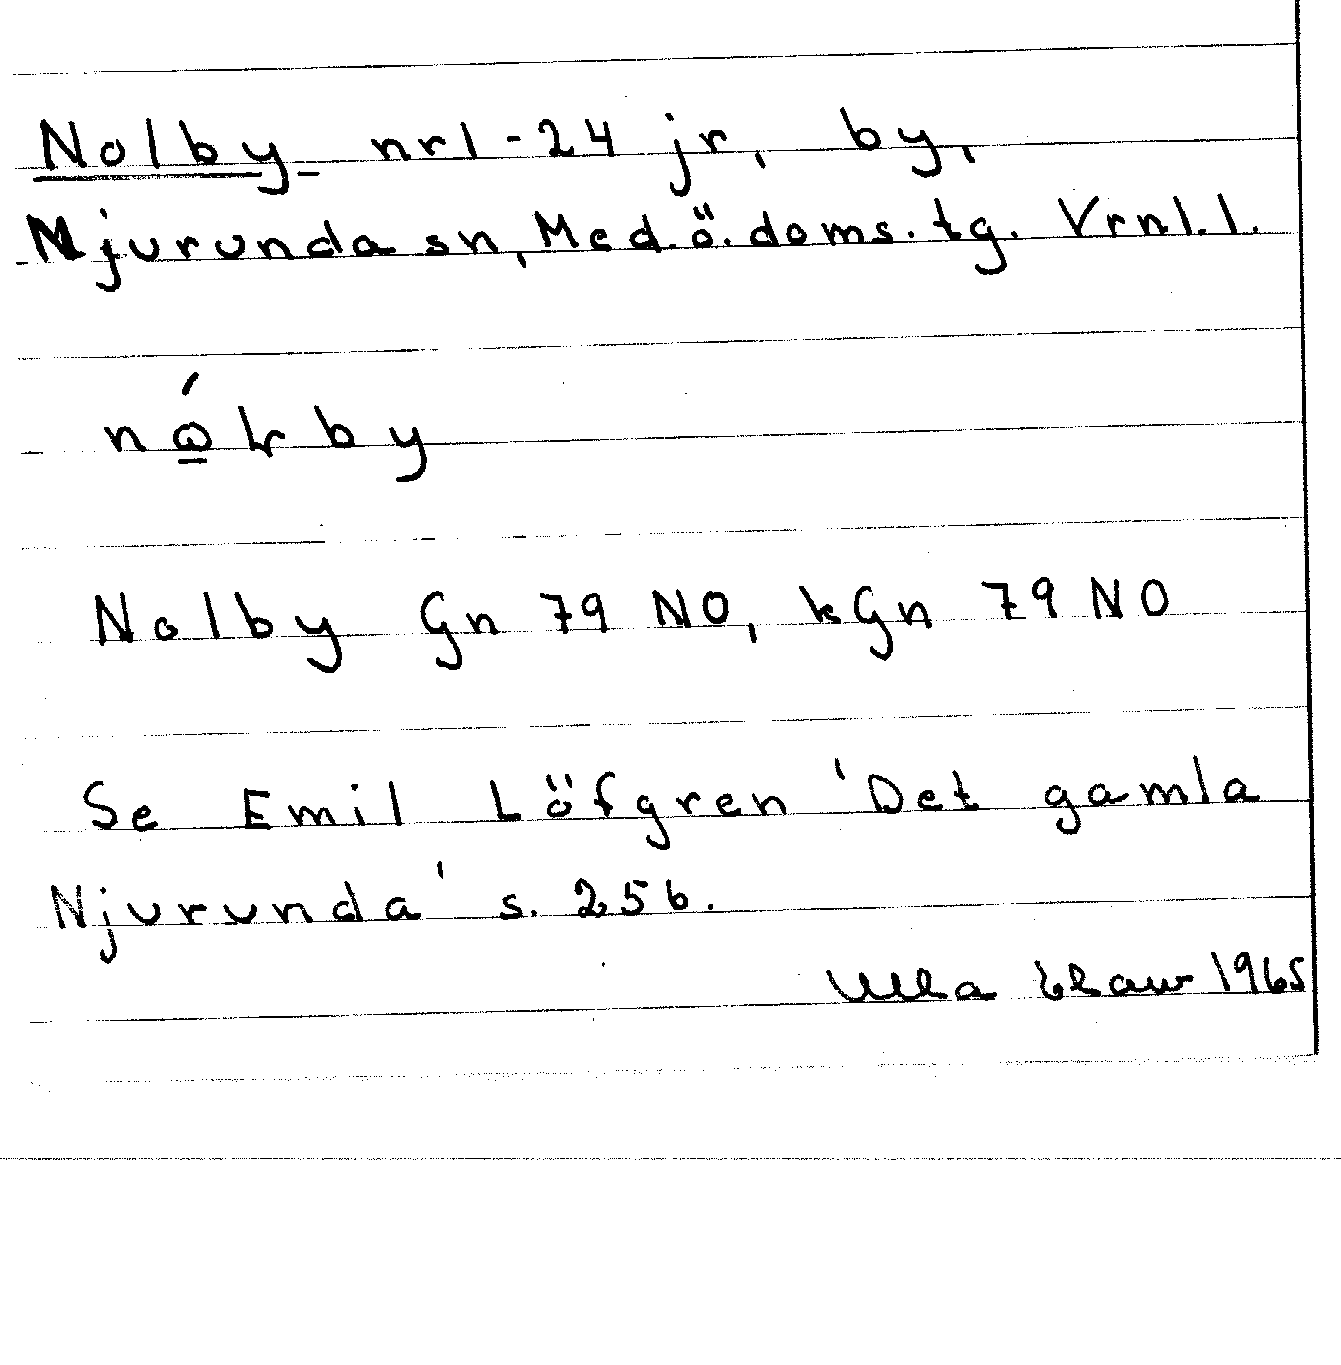 Nolby nr 1-24 jr, by,
Njurunda sn, Med.ö.doms.tg. Vrnl.l.
Nolby Gn 79 NO, kGn 79 NO
Se Emil Löfgren 'Det gamla
Njurunda' s. 256.
Ulla 1965